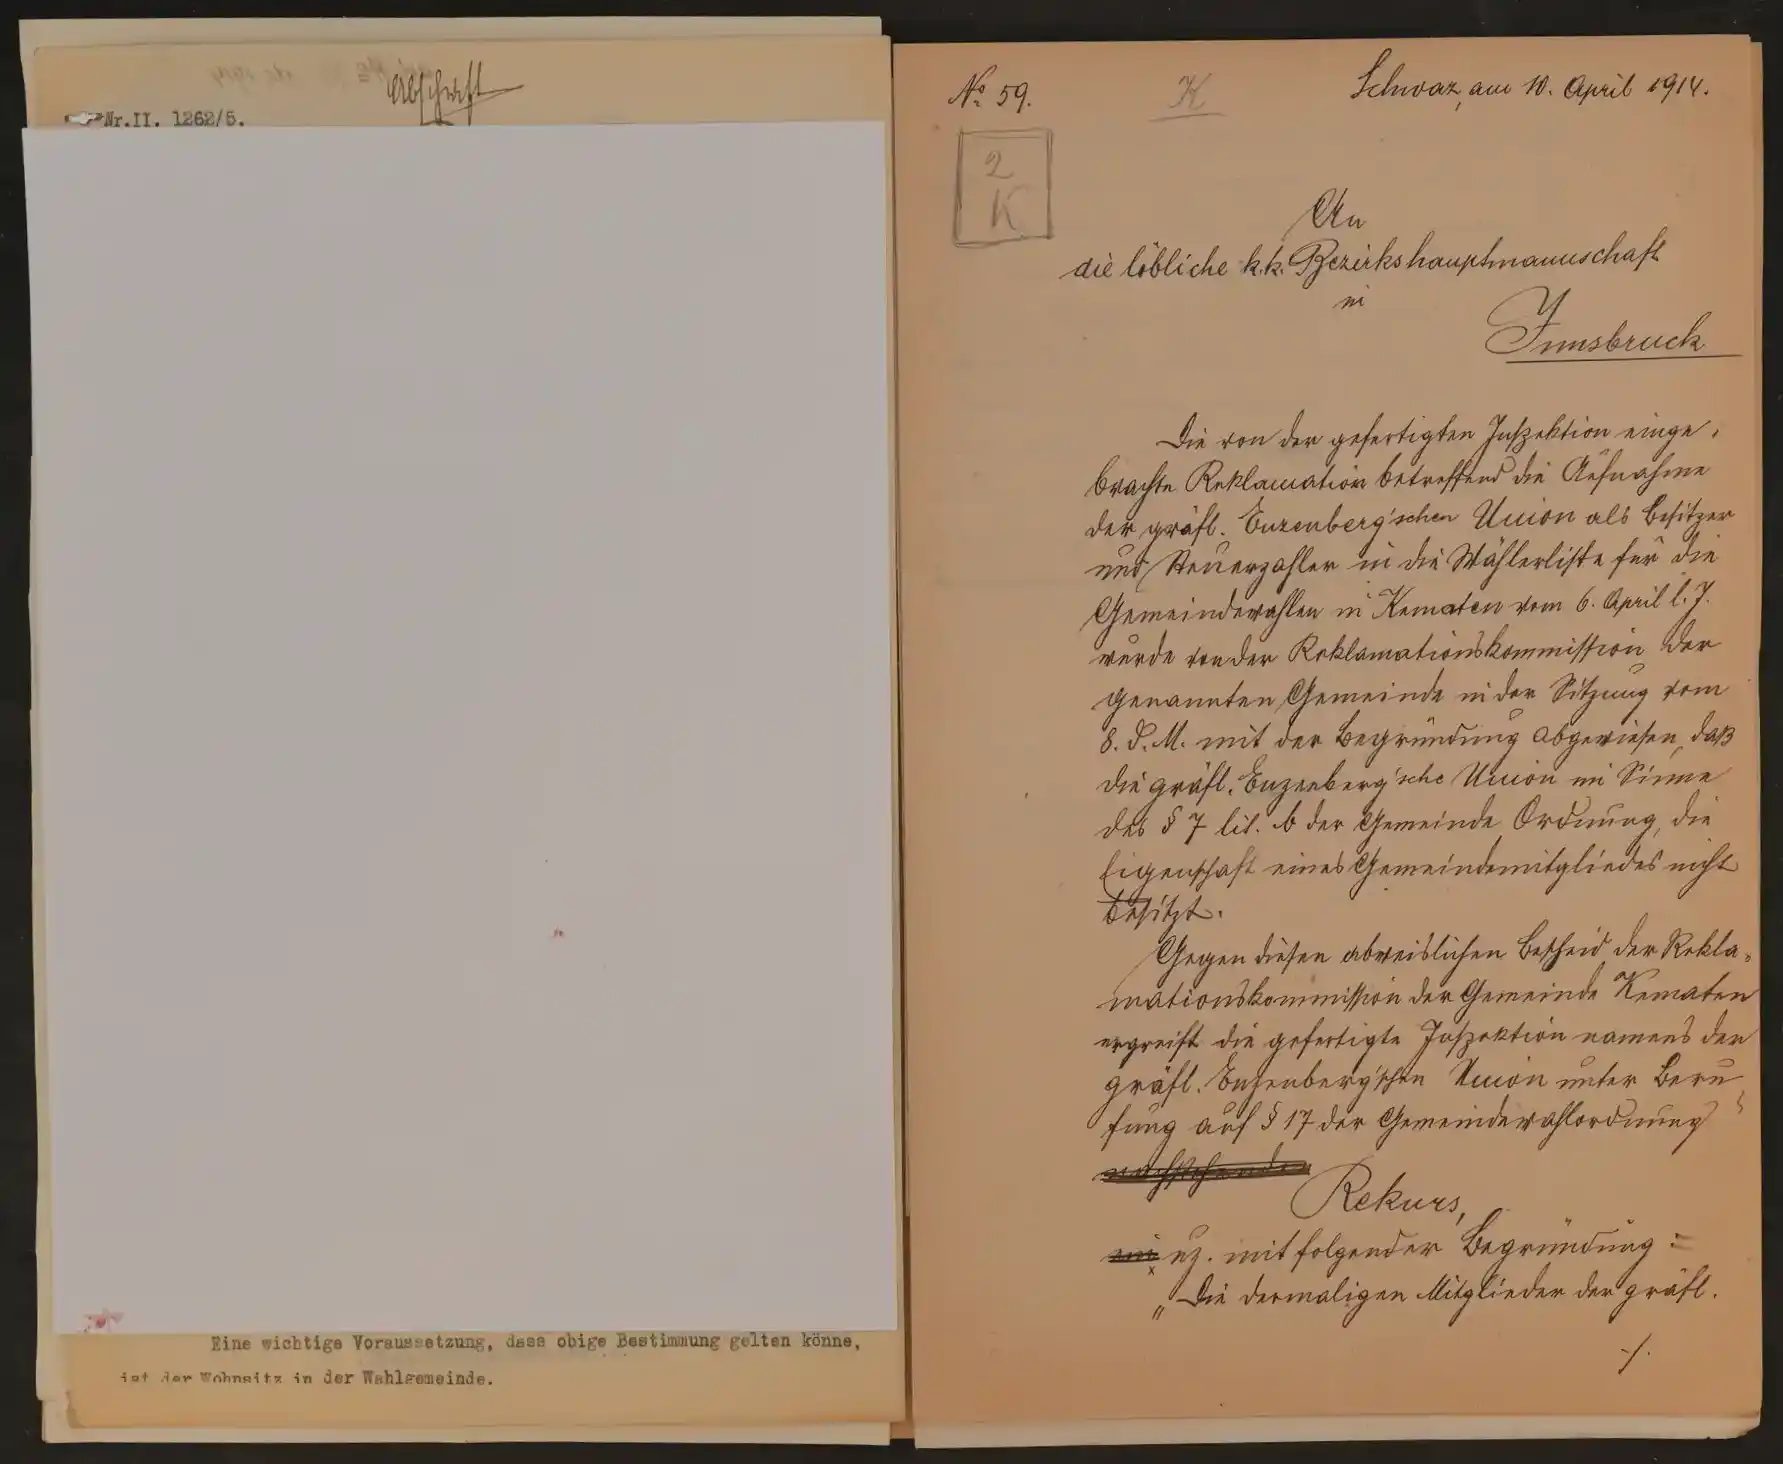 Abschrift
Nr.II. 1262/5.
Eine wichtige Voraussetzung, dass obige Bestimmung gelten könne,
ist der Wohnsitz in der Wahlgemeinde.
No. 59.
K
Schwaz, am 10. April 1914.
2
K
An
die löbliche k.k. Bezirkshauptmannschaft
in
Innsbruck
Die von der gefertigten Inspektion einge-
brachte Reklamation betreffend die Aufnahme
der gräfl. Enzenberg'schen Union als Besitzer
und Steuerzahler in die Wählerliste für die
Gemeindewahlen in Kematen vom 6. April l. J.
wurde von der Reklamationskommission der
genannten Gemeinde in der Sitzung vom
8. d. M. mit der Begründung abgewiesen, daß
die gräfl. Enzenberg'sche Union im Sinne
des § 7 lit. b der Gemeinde Ordnung, die
Eigenschaft eines Gemeindemitgliedes nicht
besitzt.
Gegen diesen abweislichen Bescheid der Rekla-
mationskommission der Gemeinde Kematen
ergreift die gefertigte Inspektion namens der
gräfl. Enzenberg'schen Union unter Beru-
fung auf § 17 der Gemeindewahlordnung
nachstehenden
Rekurs,
uz. mit folgender Begründung:
„Die dermaligen Mitglieder der gräfl.
./.